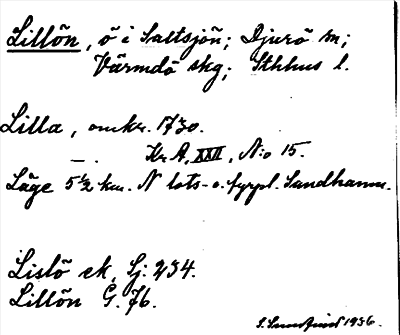 Lillön, ö i Saltsjön; Djurö sn;
Värmdö skg; Sthlms l.
Lilla, omkr. 1730.
— . Kr. A, XXII, N:o 15.
Läge 5 ½ km. N lots- o. fyrpl. Sandhamn.
Lislö ek. Sj. 234.
Lillön G. 76.
1936.